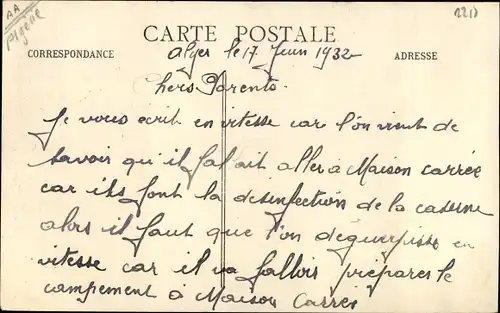 AA
Algérie
CARTE POSTALE
CORRESPONDANCE
ADRESSE
Alger le 17 Juin 1932
chers Parents.
Je vous écrit en vitesse car l'on vient de
savoir qu'il falait aller à Maison carrée
car ils font la désinfection de la caserne
alors il faut que l'on déguerpisse en
vitesse car il va falloir préparer le
campement à Maison Carrée